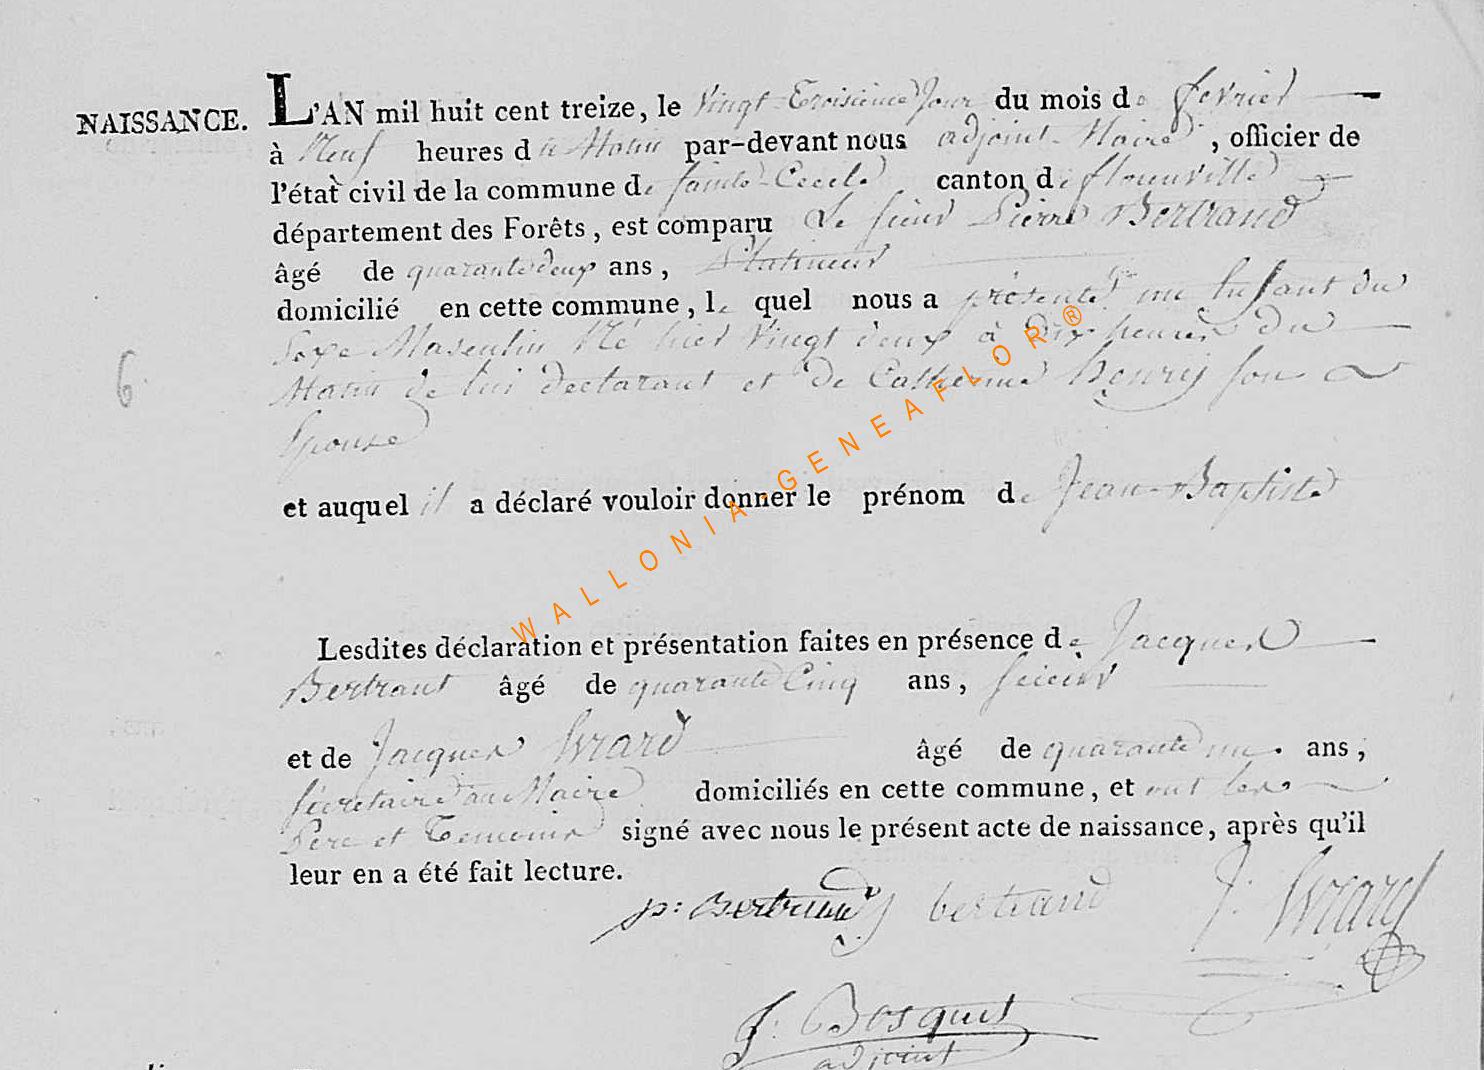 NAISSANCE. L'AN mil huit cent treize, le Vingt-Troisieme Jour du mois de fevrier
à Neuf heures du Matin par-devant nous adjoint-Maire, officier de
l'état civil de la commune de sainte-Cecile canton de florenville
département des Forêts, est comparu Le sieur Pierre Bertrand
âgé de quarante deux ans, Platineur
domicilié en cette commune, le quel nous a présenté un Enfant du
Sexe Masculin Né hier Vingt deux à Dix heures du
Matin de lui declarant et de Catherine Henry son
Epouse
6
et auquel il a déclaré vouloir donner le prénom de Jean-Baptiste
WALLONIA-GENEAFLOR®
Lesdites déclaration et présentation faites en présence de Jacques
Bertrant âgé de quarante Cinq ans,
et de Jacques Evrard âgé de quarante un ans,
sécretaire au Maire domiciliés en cette commune, et ont les
Pere et Temoins signé avec nous le présent acte de naissance, après qu'il
leur en a été fait lecture.
p: Bertrand J bertrand J: Evrard
J: Bosquet
adjoint